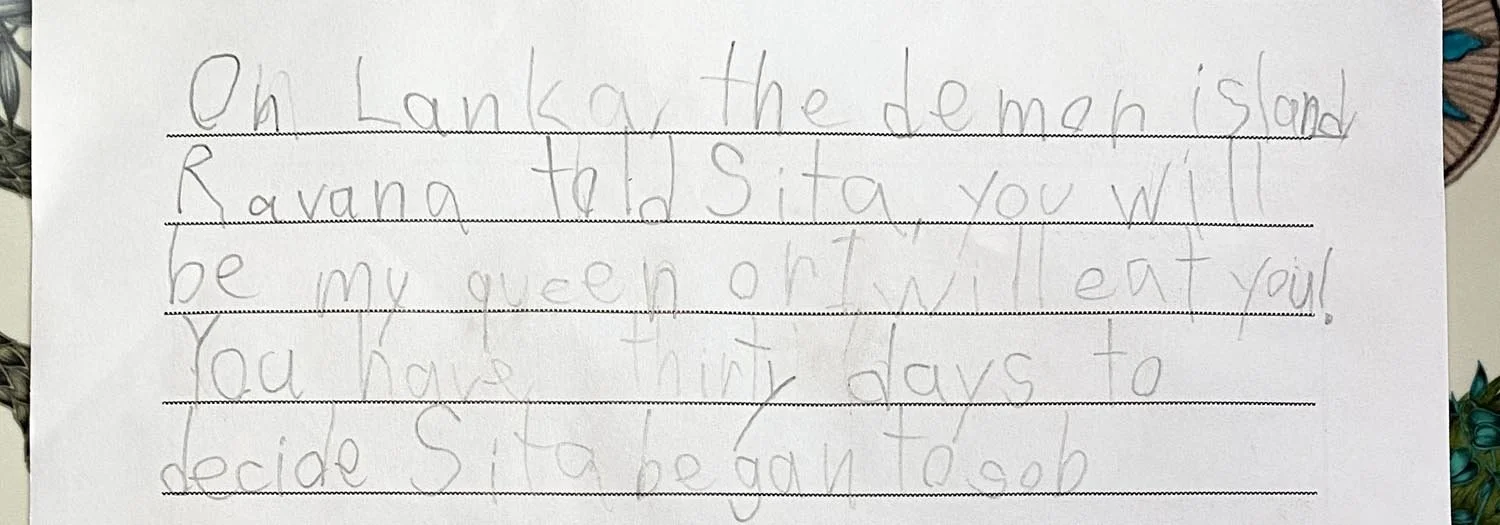 On Lanka, the demon island
Ravana told Sita, you will
be my queen or I will eat you!
You have thirty days to
decide Sita began to sob